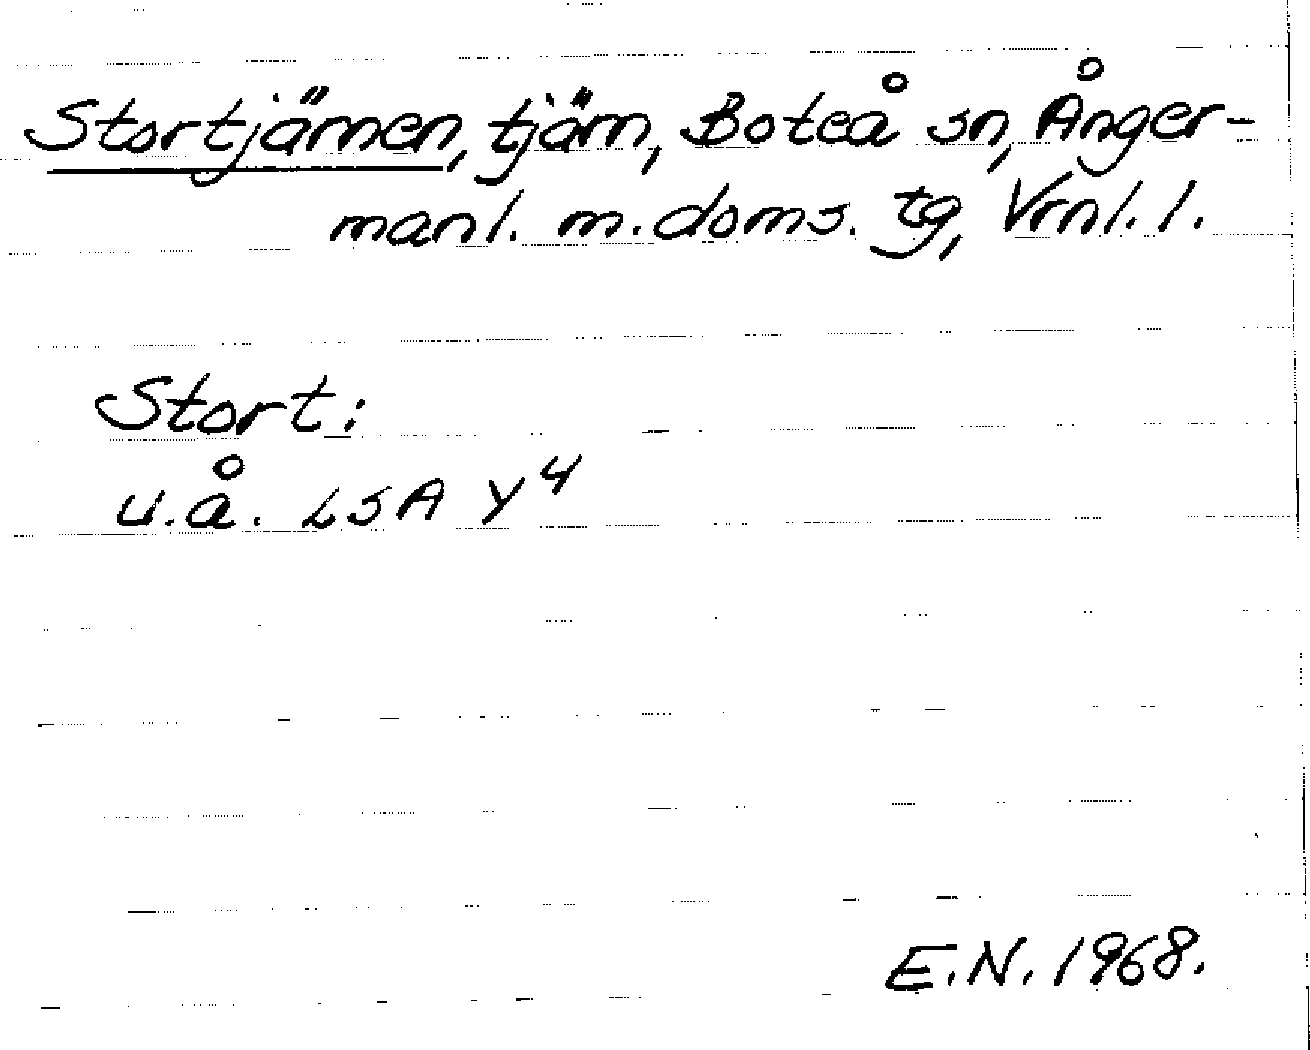 Stortjärnen, tjärn, Boteå sn, Ånger-
manl. m. doms. tg, Vrnl. l.
Stort:
u.å. LSA Y4
E.N. 1968.